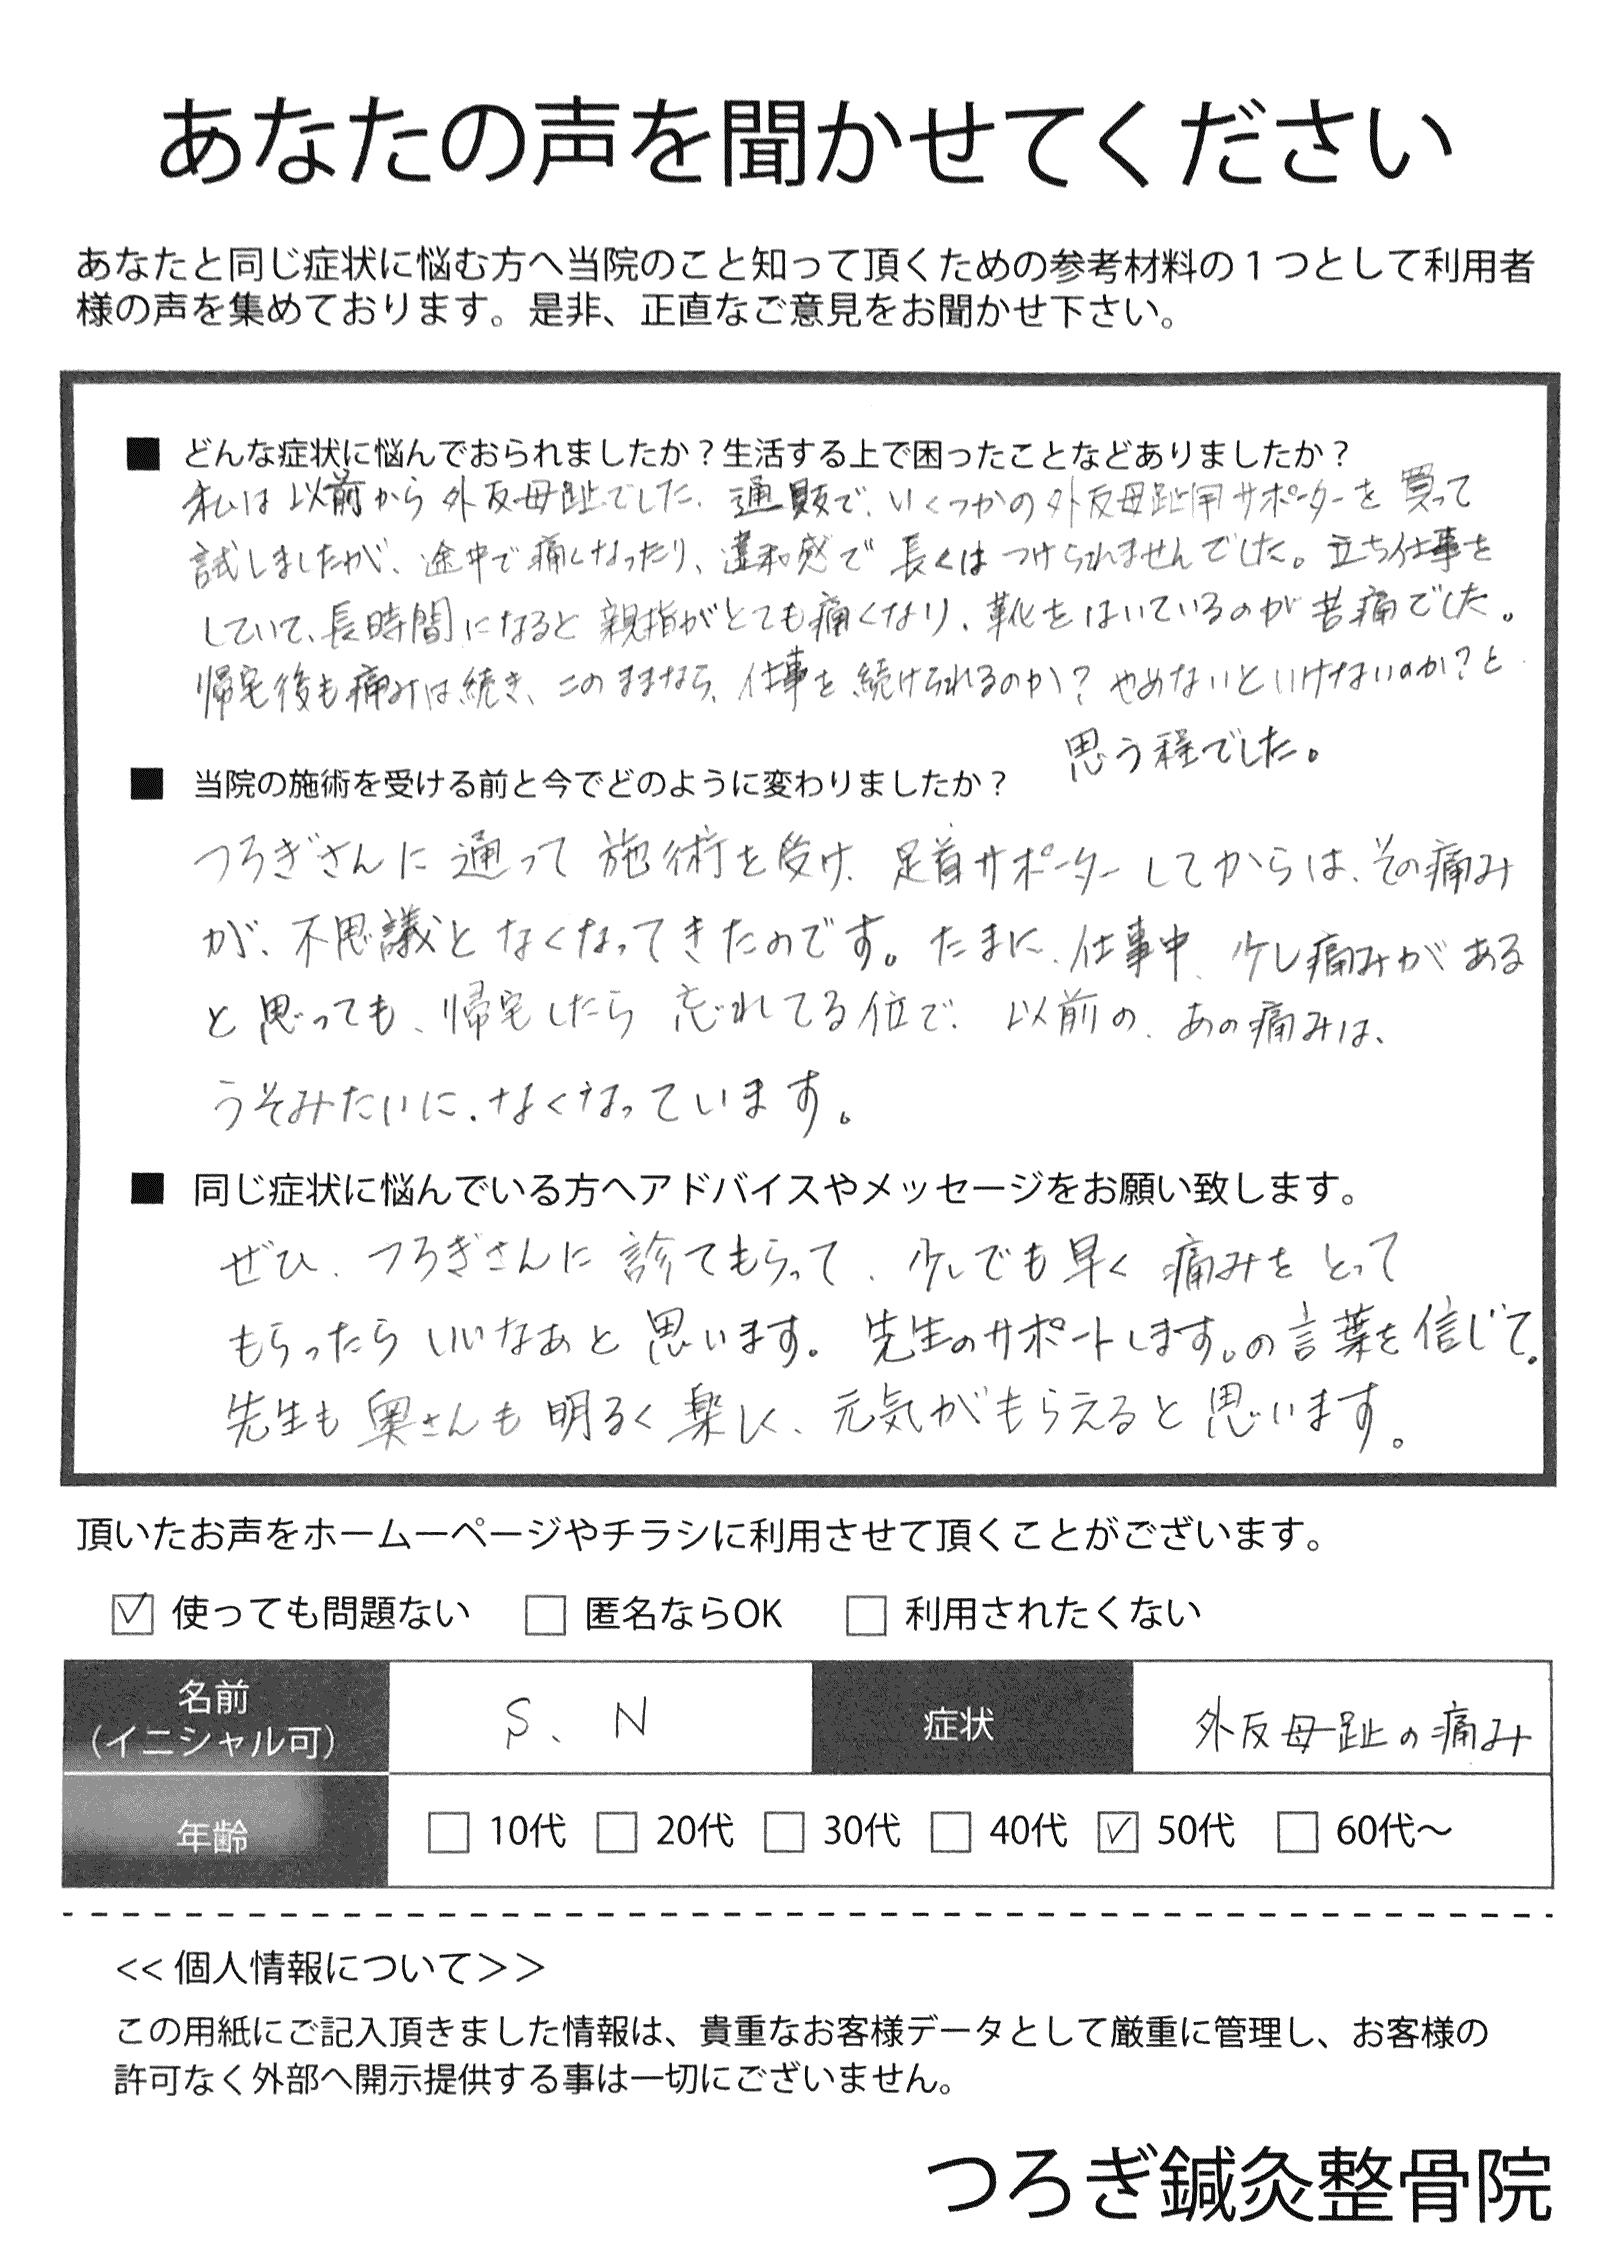 あなたの声を聞かせてください
あなたと同じ症状に悩む方へ当院のこと知って頂くための参考材料の１つとして利用者
様の声を集めております。是非、正直なご意見をお聞かせ下さい。
■ どんな症状に悩んでおられましたか？生活する上で困ったことなどありましたか？
私は以前から外反母趾でした。通販で、いくつかの外反母趾用サポーターを買って
試しましたが、途中で痛くなったり、違和感で長くはつけられませんでした。立ち仕事を
していて、長時間になると親指がとても痛くなり、靴をはいているのが苦痛でした。
帰宅後も痛みは続き、このままなら、仕事を続けられるのか？やめないといけないのか？と
思う程でした。
■ 当院の施術を受ける前と今でどのように変わりましたか？
つろぎさんに通って施術を受け、足首サポーターしてからは、その痛み
が、不思議となくなってきたのです。たまに、仕事中、少し痛みがある
と思っても、帰宅したら忘れてる位で、以前の、あの痛みは、
うそみたいに、なくなっています。
■ 同じ症状に悩んでいる方へアドバイスやメッセージをお願い致します。
ぜひ、つろぎさんに診てもらって、少しでも早く痛みをとって
もらったらいいなあと思います。先生のサポートします。の言葉を信じて、
先生も奥さんも明るく楽しく、元気がもらえると思います。
頂いたお声をホームーページやチラシに利用させて頂くことがございます。
☑ 使っても問題ない □ 匿名ならOK □ 利用されたくない
名前 S、N 症状 外反母趾の痛み
（イニシャル可）
年齢 □ 10代 □ 20代 □ 30代 □ 40代 ☑ 50代 □ 60代〜
<< 個人情報について＞＞
この用紙にご記入頂きました情報は、貴重なお客様データとして厳重に管理し、お客様の
許可なく外部へ開示提供する事は一切にございません。
つろぎ鍼灸整骨院